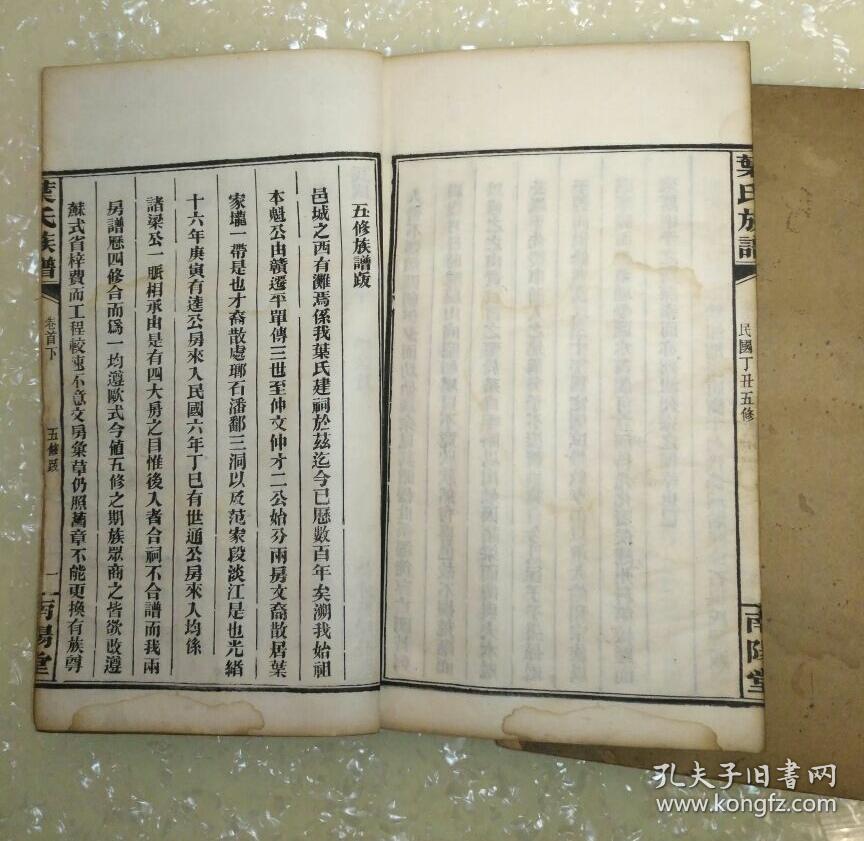 葉氏族譜
民國丁丑五修
南陽堂
五修族譜跋
邑城之西有灘焉係我葉氏建祠於茲迄今已歷數百年矣溯我始祖
本魁公由贛遷平單傳三世至仲文仲才二公始分兩房文裔散居葉
家壠一帶是也才裔散處瑯石潘鄱三洞以及范家段淡江是也光緒
十六年庚寅有逵公房來入民國六年丁巳有世通公房來入均係
諸梁公一脈相承由是有四大房之目惟後入者合祠不合譜而我兩
房譜歷四修合而爲一均遵歐式今値五修之期族眾商之皆欲改遵
蘇式省梓費而工程較速不意文房彙草仍照舊章不能更換有族尊
葉氏族譜
卷首下
五修跋
一
南陽堂
孔夫子旧书网
www.kongfz.com